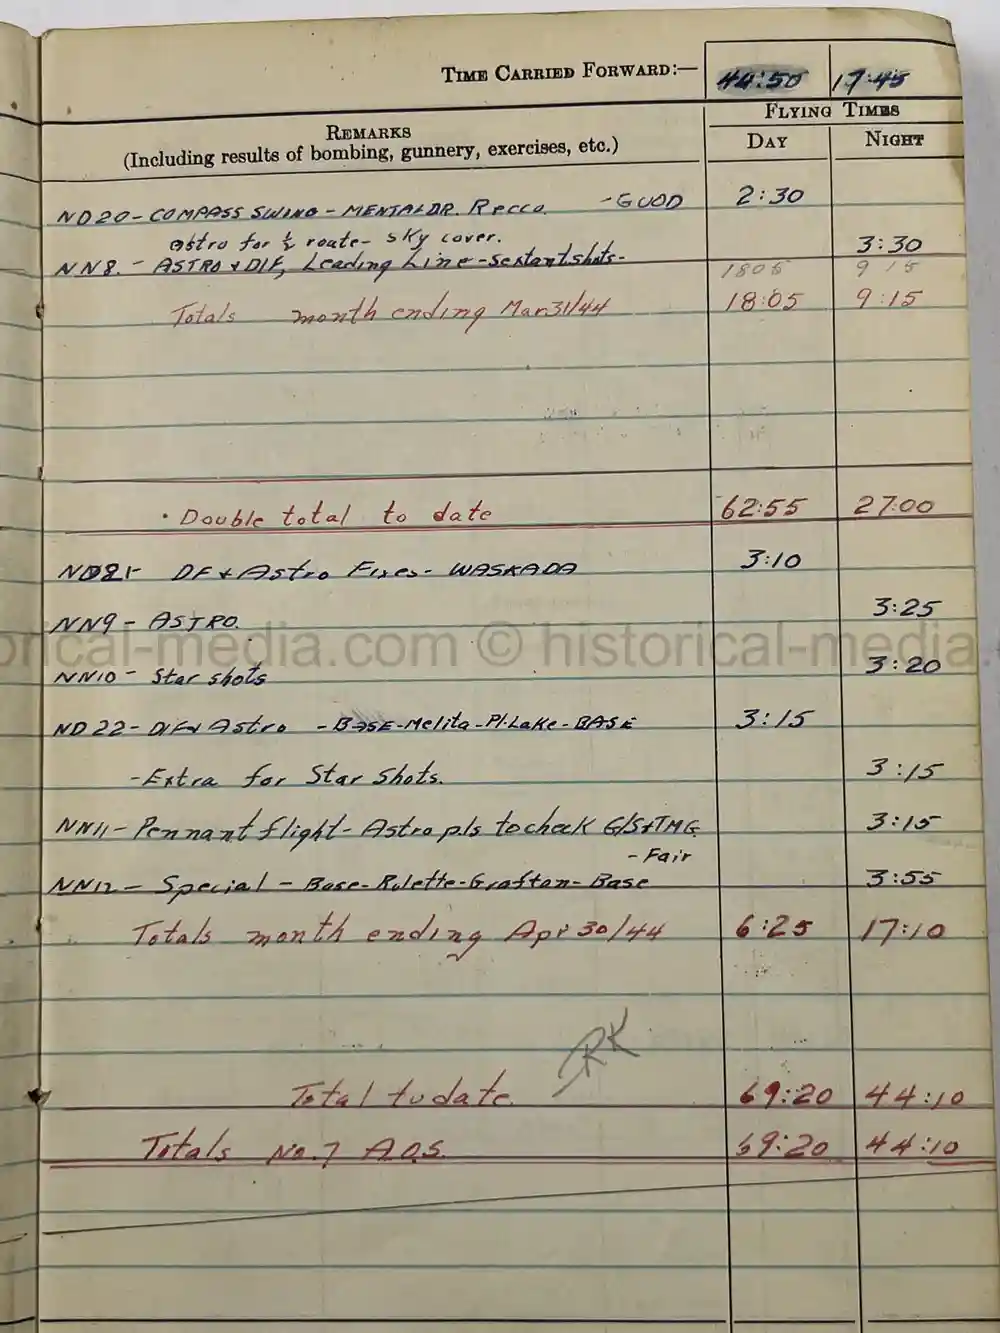 TIME CARRIED FORWARD:— 44:50 17:45
FLYING TIMES
REMARKS
(Including results of bombing, gunnery, exercises, etc.)
DAY NIGHT
ND20 - COMPASS SWING - MENTAL DR. Recco. - GOOD 2:30
Astro for ½ route - sky cover. 3:30
NN8. - ASTRO + DIF, Leading Line - Sextant shots -
1805 9 15
Totals month ending Mar 31/44 18:05 9:15
Double total to date 62:55 27:00
ND21- DF + Astro Fixes - WASKADA 3:10
NN9 - ASTRO. 3:25
historical-media.com © historical-media.
NN10 - Star shots 3:20
ND22 - D/F + Astro - BASE - Melita - Pl. Lake - BASE 3:15
- Extra for Star Shots. 3:15
NN11 - Pennant flight - Astro pls to check G/S + TMG. 3:15
- Fair
NN12 - Special - Base - Rolette - Grafton - Base 3:55
Totals month ending Apr 30/44 6:25 17:10
RK
Total to date 69:20 44:10
Totals No. 7 A.O.S. 69:20 44:10